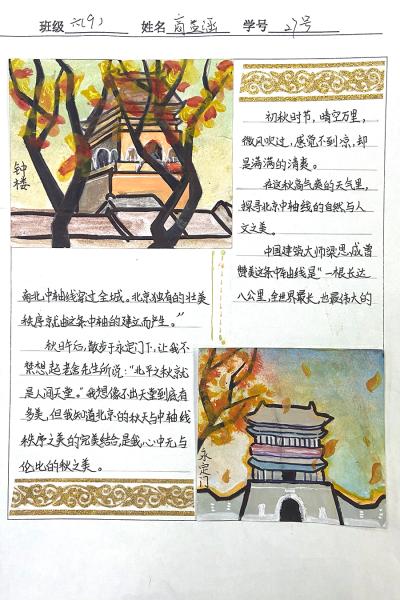 班级 六(9) 姓名 商益涵 学号 27号
钟
楼
初秋时节，晴空万里，
微风吹过，感觉不到凉，却
是满满的清爽。
在这秋高气爽的天气里，
探寻北京中轴线的自然与人
文之美。
中国建筑大师梁思成曾
赞美这条中轴线是“一根长达
八公里，全世界最长，也最伟大的
南北中轴线穿过全城。北京独有的壮美
秩序就由这条中轴的建立而产生。”
秋日午后，散步于永定门下，让我不
禁想起老舍先生所说：“北平之秋就
是人间天堂。”我想像不出天堂到底有
多美，但我知道北京的秋天与中轴线
秩序之美的完美结合，是我心中无与
伦比的秋之美。
永
定
门